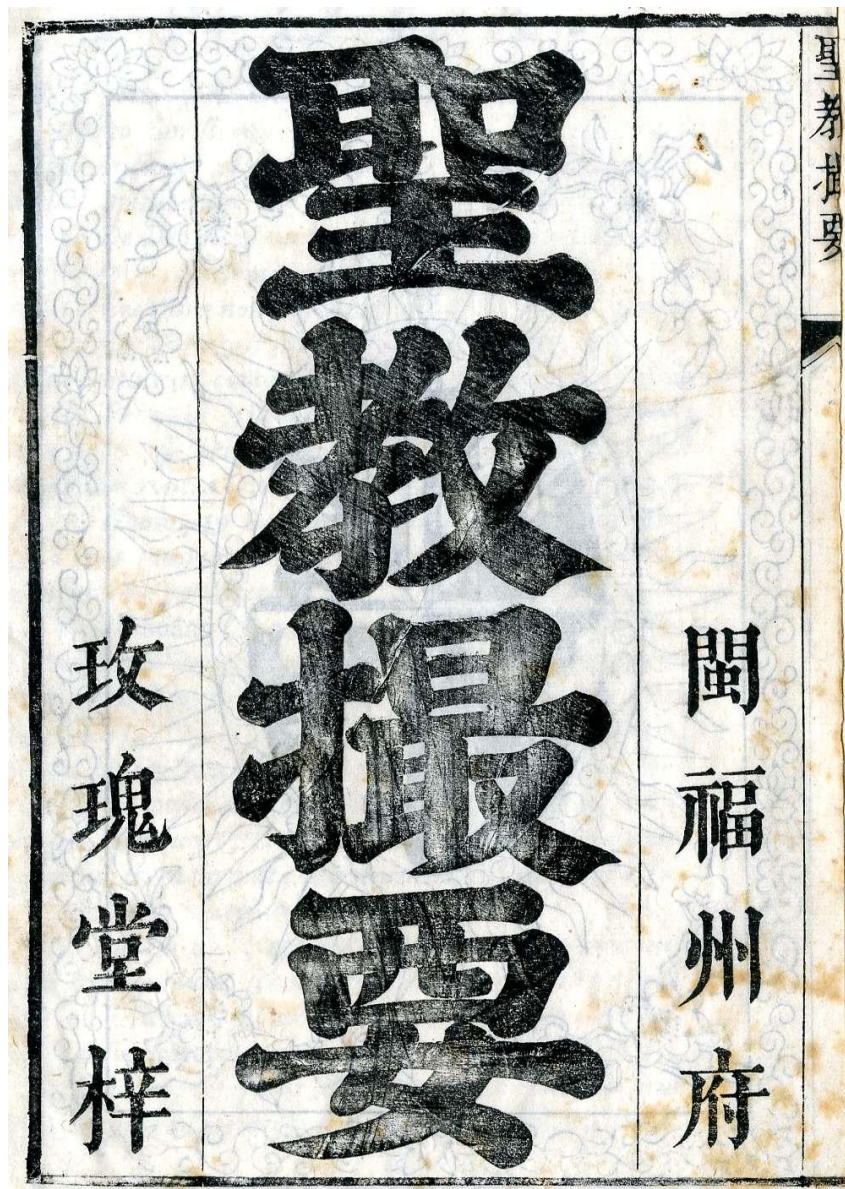 聖教撮要
閩福州府
聖教撮要
玫瑰堂梓